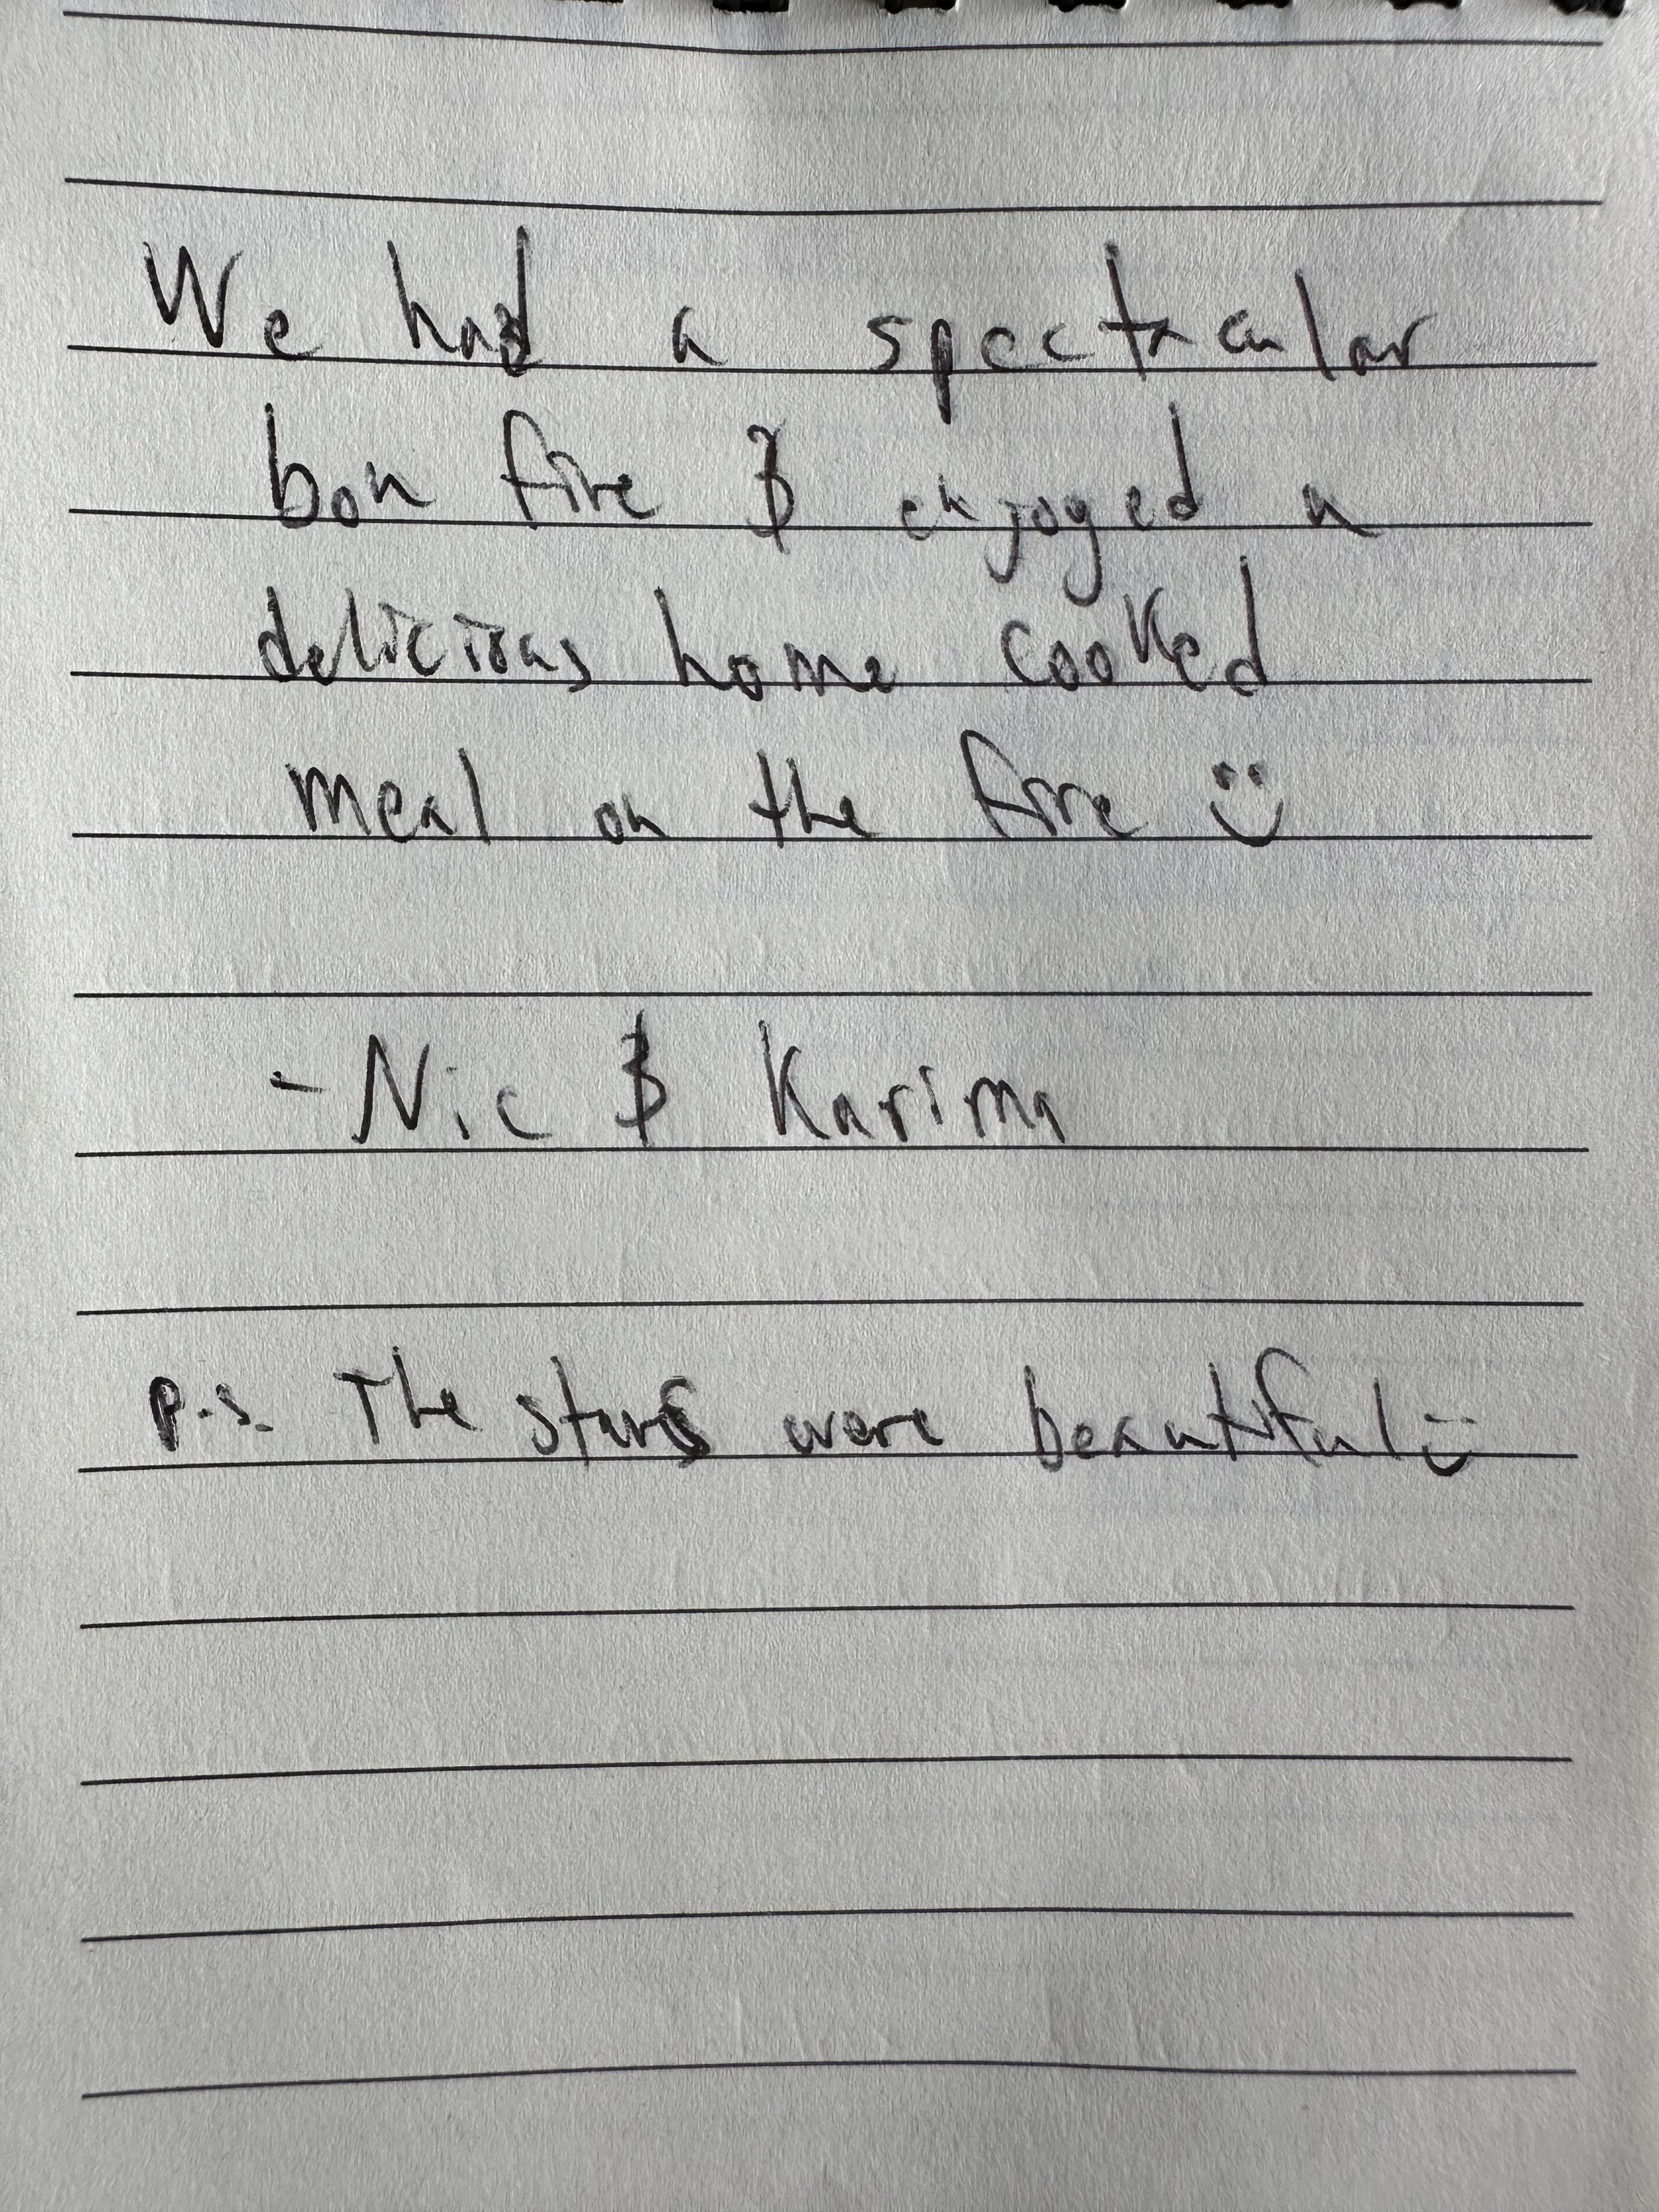 We had a spectacular
bon fire & enjoyed a
delicious home cooked
meal on the fire :)
- Nic & Karima
P.S. The stars were beautiful :)